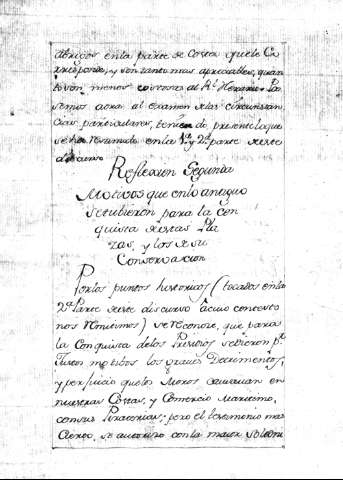 abrigos en la parte de Costa que le Co
rresponde, y son tanto mas apreciables, quan
to son menos costosas al Rl. Herario. Pa
semos aora al examen de las circunstan
cias particulares, teniendo presente lo que
se ha resumido en la 1a. y 2a. parte de este
discurso
Reflexion Segunda
Motivos que en lo antiguo
se tubieron para la con
quista de estas Pla
zas, y los de su
Conservacion
Por los puntos historicos (tocados en la
2a. Parte de este discurso à cuio contexto
nos remitimos) se reconoce, que para
la Conquista de los Presidios se dieron pr.
Justos motibos los graves Detrimentos,
y perjuicio que los Moros causauan en
nuestras Costas, y Comercio Maritimo,
con sus Piraterias; pero el testimonio mas
Cierto, se autorizo con la maior solemni